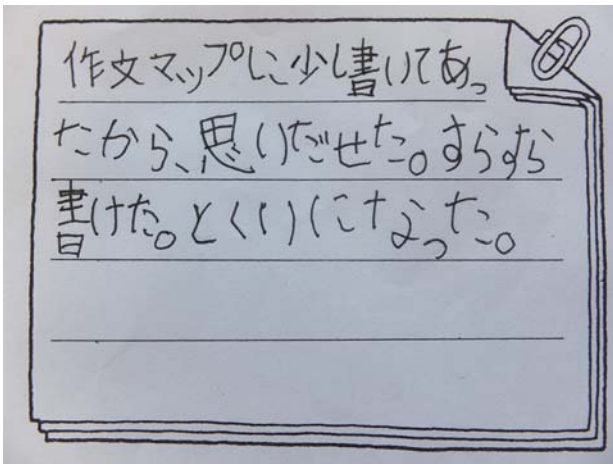 作文マップに少し書いてあっ
たから、思いだせた。すらすら
書けた。とくいになった。